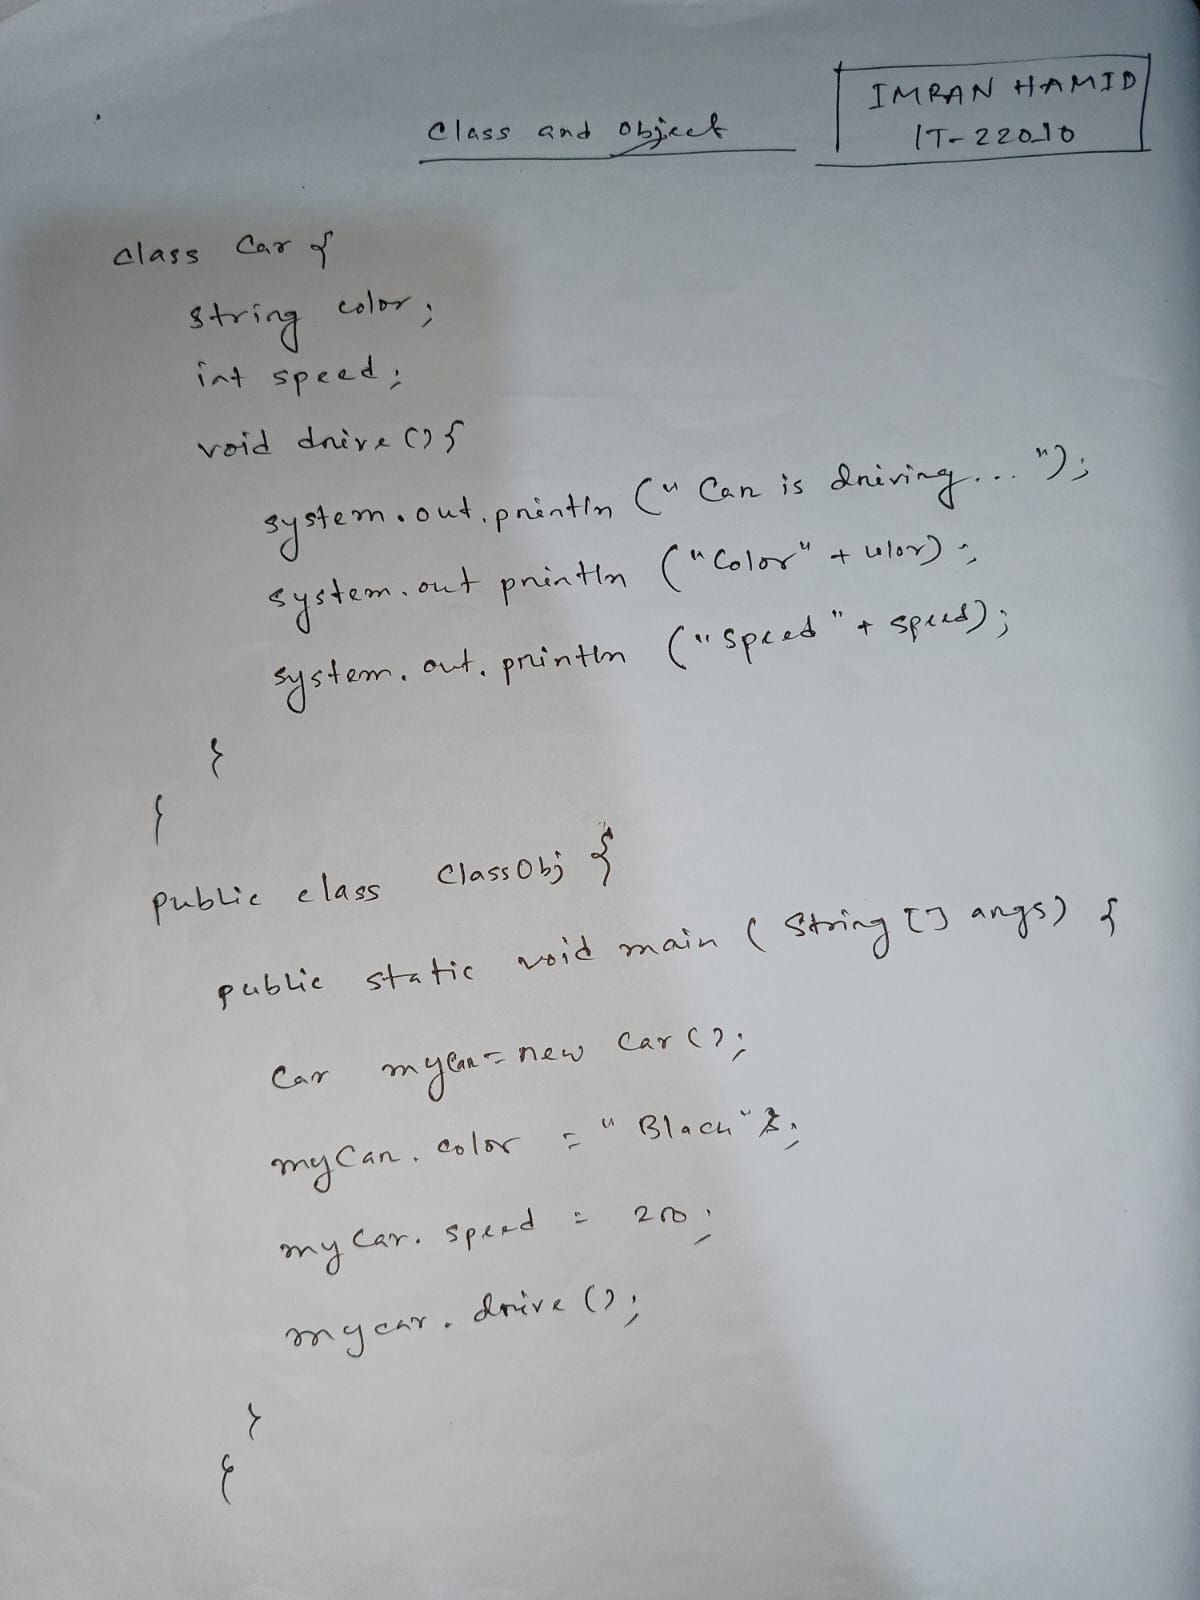 Class and Object
IMRAN HAMID
IT-22010
class Car {
string color;
int speed;
void drive () {
system.out.println (" Car is driving... ");
system.out println ("Color" + color);
system.out.println ("speed" + speed);
}
}
public class ClassObj {
public static void main ( String [] args) {
Car myCar = new Car ();
myCar. color = " Black";
my Car. speed = 200;
mycar. drive ();
}
}